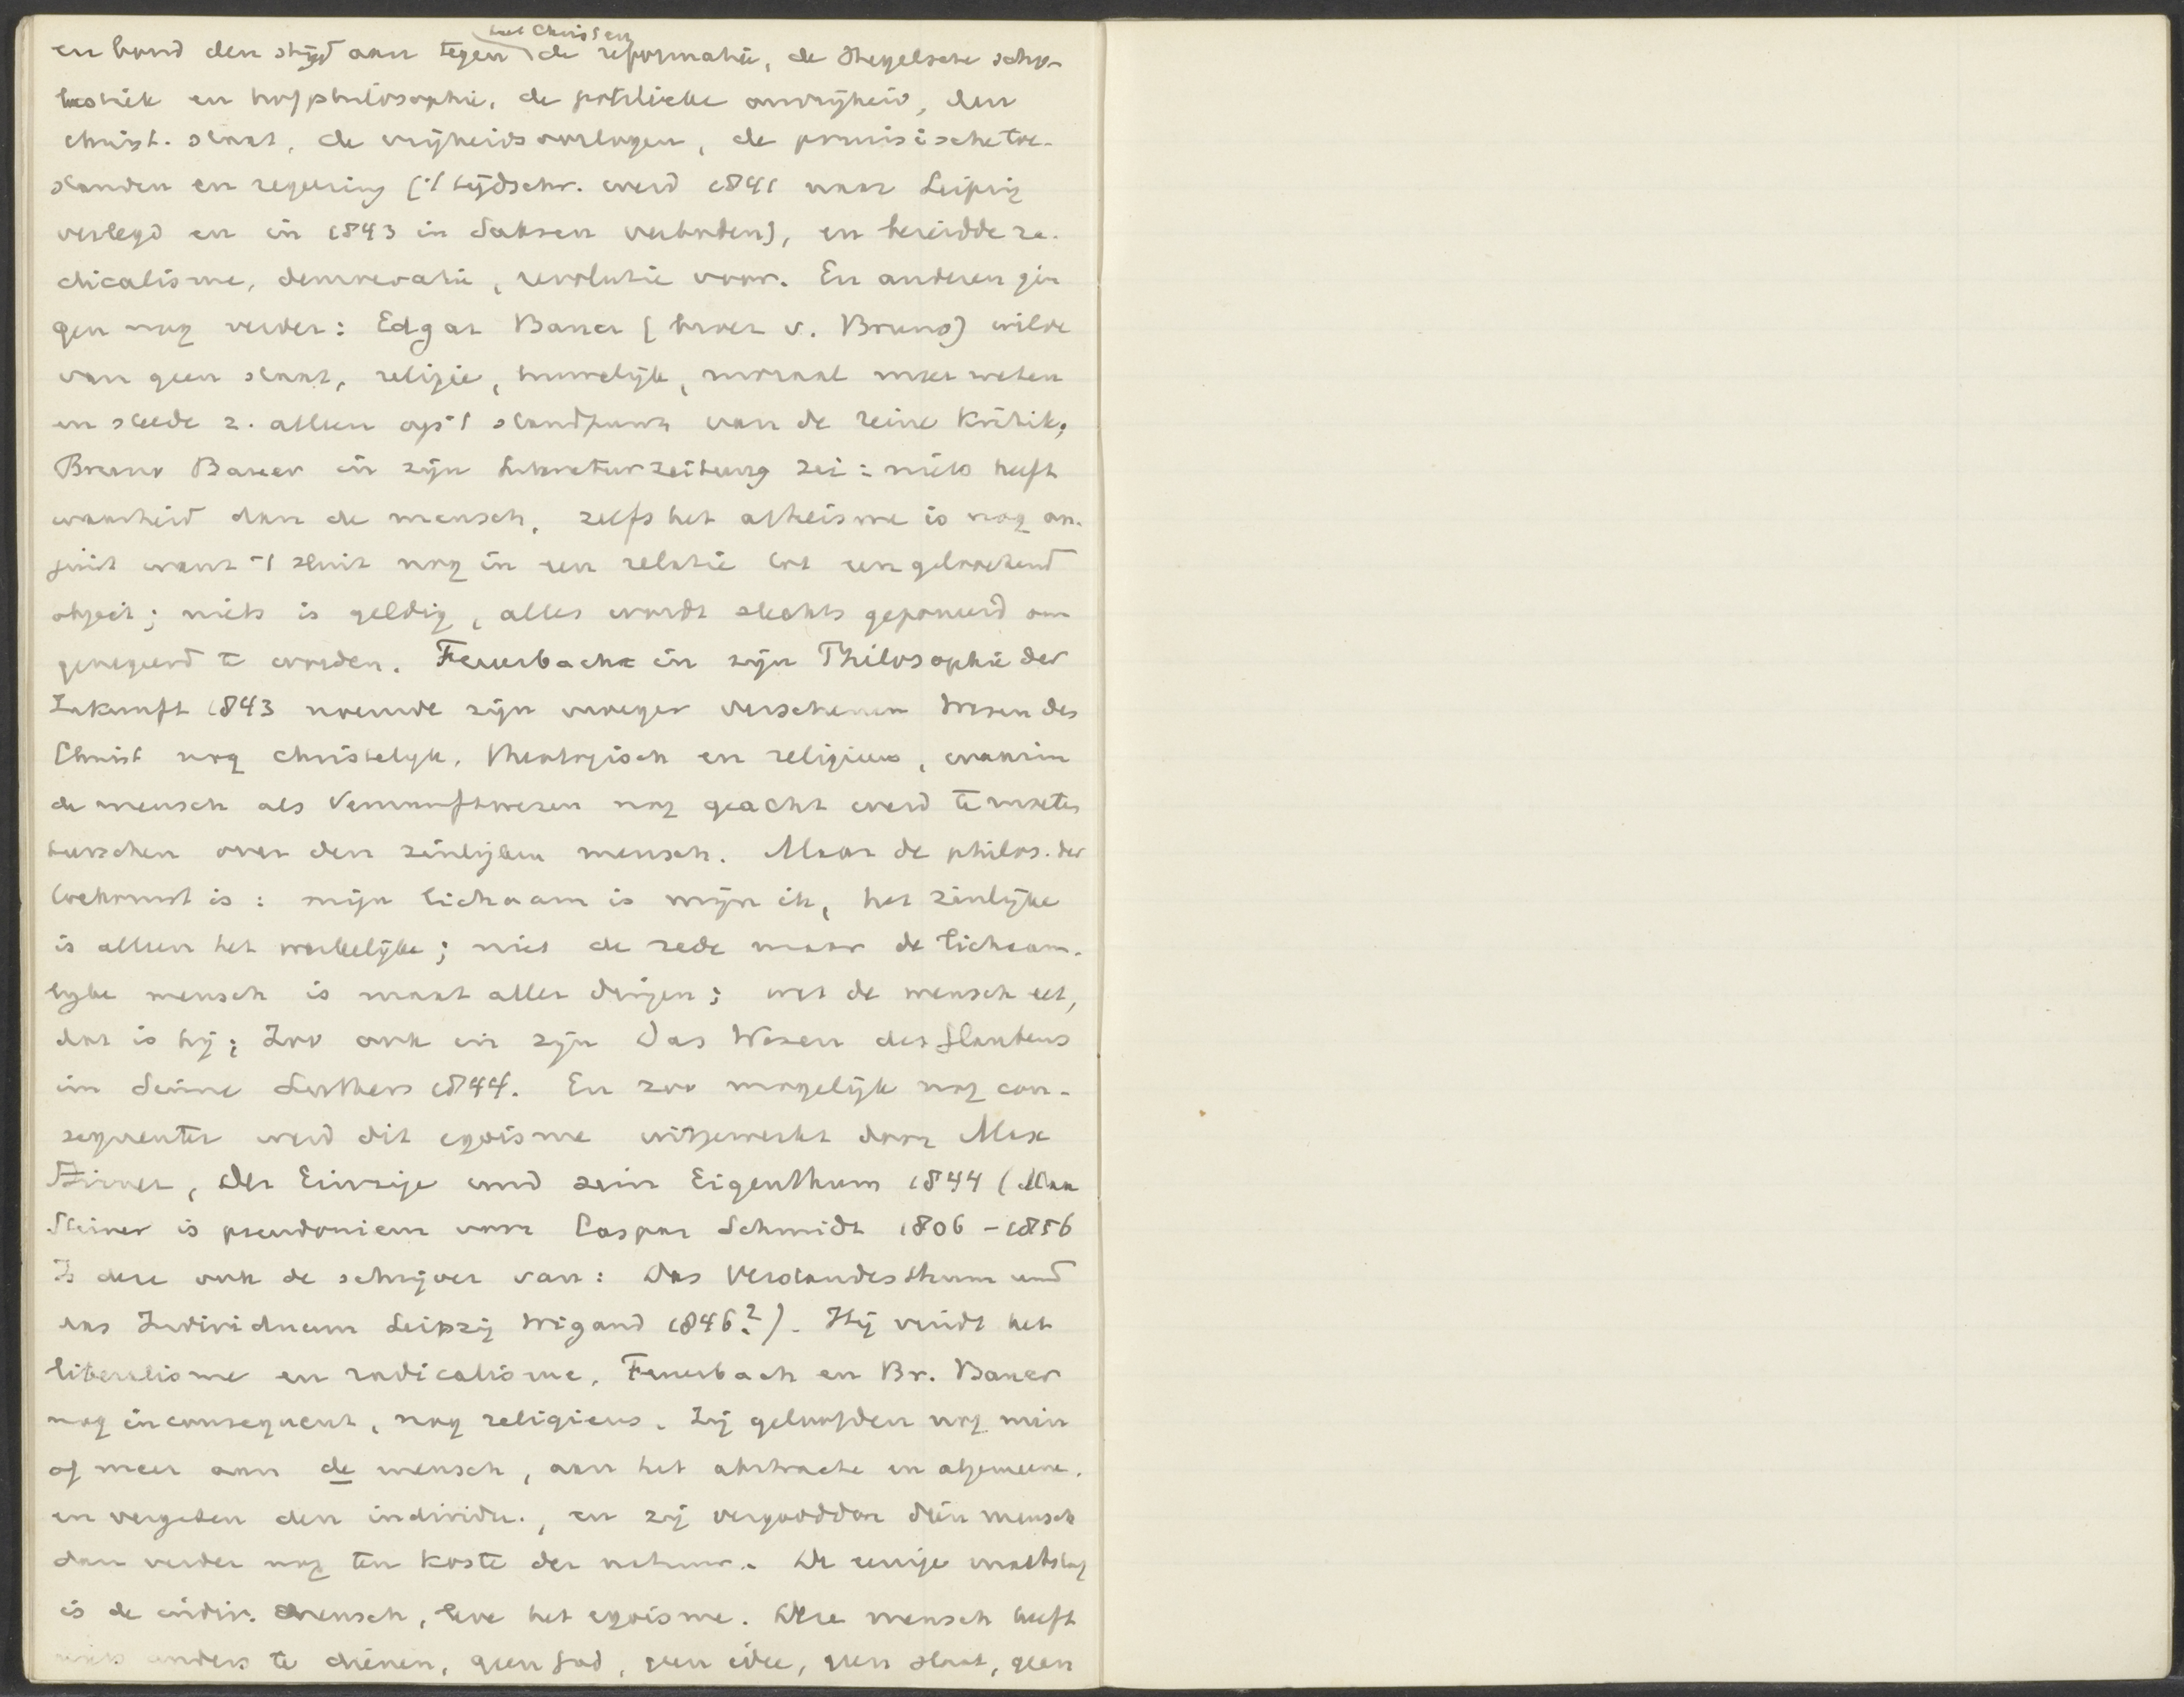 het Christen
en bond den strijd aan tegen de reformatie, de Hegelsche scho-
lastiek en hofphilosophie, de politieke onvrijheid, den
christ. staat, de vrijheidsoorlogen, de pruisische toe-
standen en regeering ('t tijdschr. werd 1841 naar Leipzig
verlegd en in 1843 in Saksen verboden), en bereidde ra-
dicalisme, democratie, revolutie voor. En anderen gin
gen nog verder: Edgar Bauer (broer v. Bruno) wilde
van geen staat, religie, huwelijk, moraal meer weten
en stelde z. alleen op 't standpunt van de reine Kritik,
Bruno Bauer in zijn Literaturzeitung zei: niets heeft
waarheid dan de mensch, zelfs het atheisme is nog on-
juist want 't sluit nog in een relatie tot een geloochend
object; niets is geldig, alles wordt slechts geponeerd om
genegeerd te worden. Feuerbach in zijn Philosophie der
Zukunft 1843 noemde zijn vroeger verschenen Wesen des
Christ nog christelijk, theologisch en religieus, waarin
de mensch als Vernunftwesen nog geacht werd te moeten
heerschen over den zinlijken mensch. Maar de philos. der
toekomst is: mijn lichaam is mijn ik, het zinlijke
is alleen het werkelijke; niet de rede maar de lichaam-
lijke mensch is maat aller dingen; wat de mensch eet,
dat is hij; Zoo ook in zijn Das Wesen des Glaubens
im Sinne Luthers 1844. En zoo mogelijk nog con-
sequenter werd dit egoisme uitgewerkt door Max
Stirner, Der Einzige und sein Eigenthum 1844 (Max
Stirner is pseudoniem voor Caspar Schmidt 1806 - 1856
Is deze ook de schrijver van: Das Verstandesthum und
das Individuum Leipzig Wigand 1846?). Hij vindt het
liberalisme en radicalisme, Feuerbach en Br. Bauer
nog inconsequent, nog religieus. Zij geloofden nog min
of meer aan de mensch, aan het abstracte en algemeene,
en vergeten den individu., en zij vergoodden dien mensch
dan verder nog ten koste der natuur. De eenige maatstaf
is de indiv. mensch, leve het egoisme. Deze mensch heeft
niets anders te dienen, geen God, geen idee, geen staat, geen